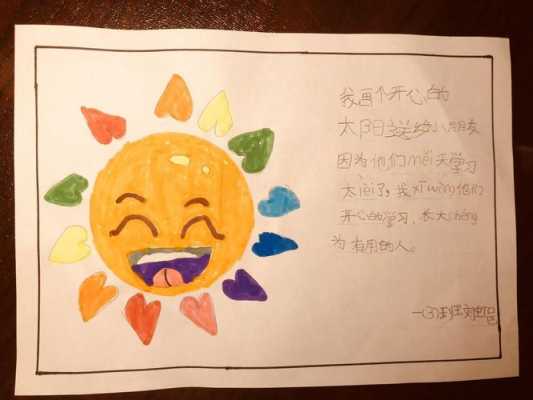 我画个开心的
太阳送给小朋友
因为他们měi天学习
太lèi了，我xīwàng他们
开心的学习，长大chéng
为有用的人。
一(3)班刘